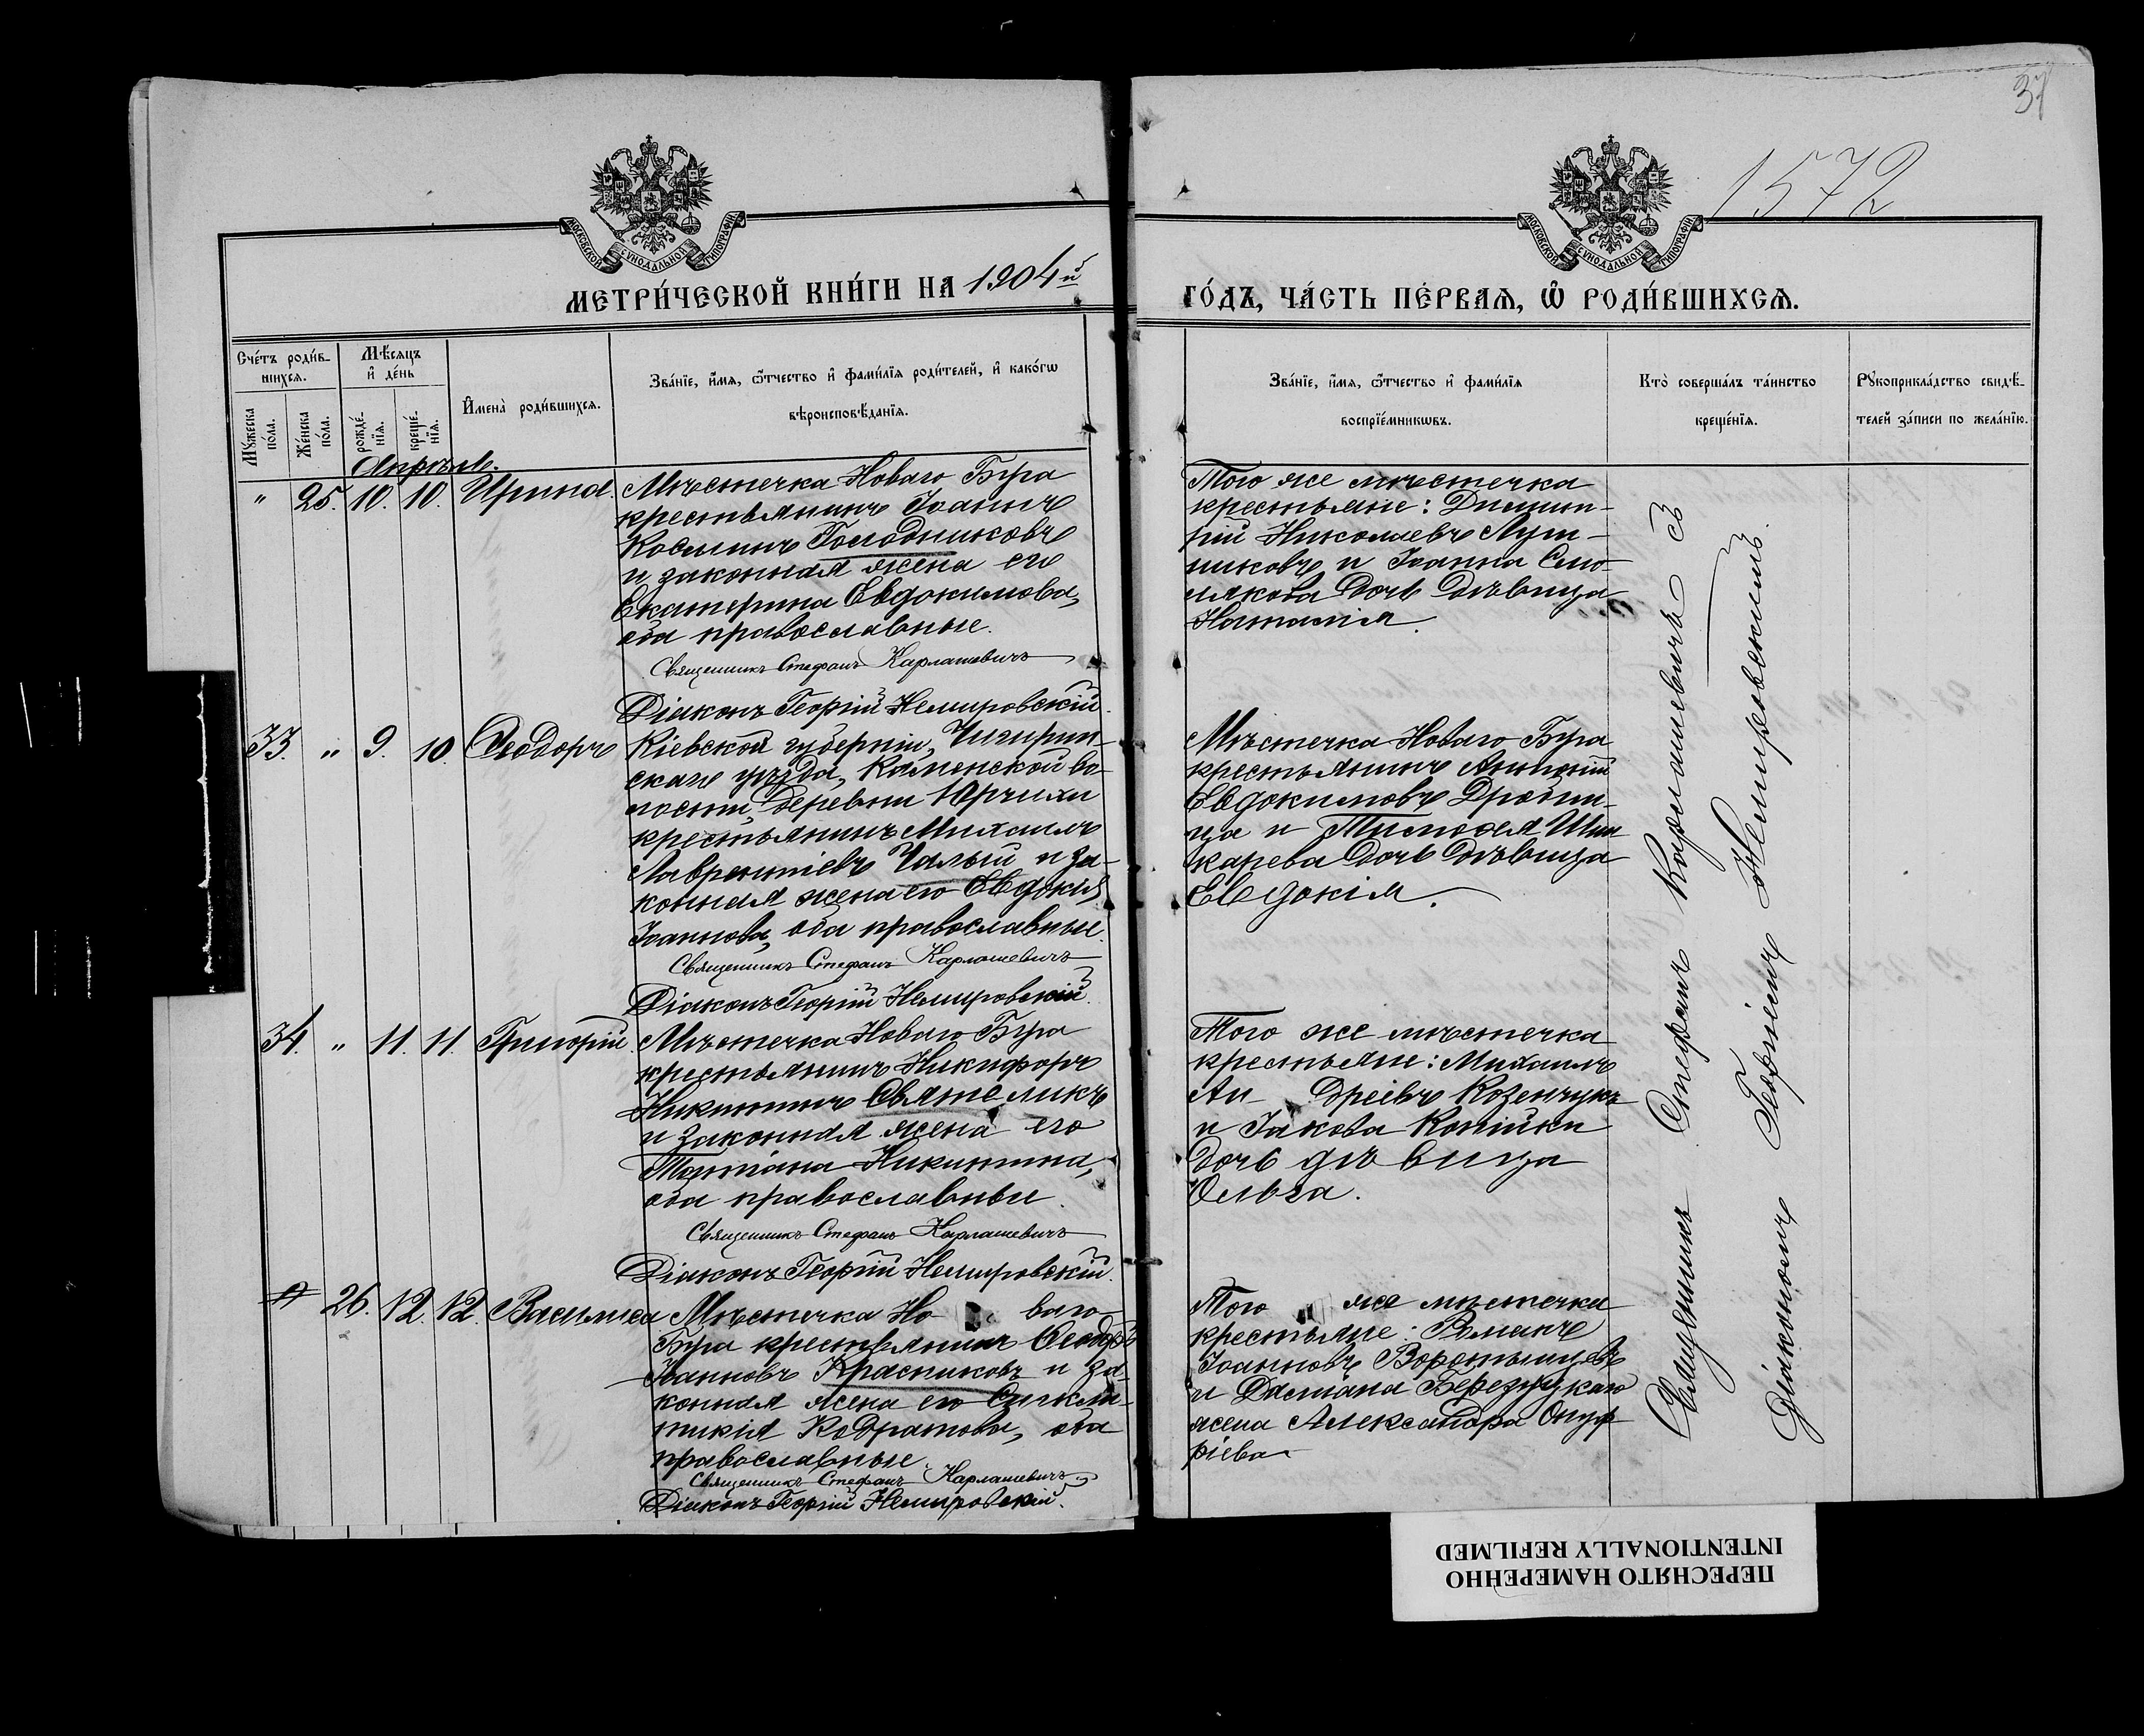 37
1572
МОСКОВСКОЙ СУНОДАЛЬНОЙ ТИПОГРАФІИ
МОСКОВСКОЙ СУНОДАЛЬНОЙ ТИПОГРАФІИ
МЕТРИ́ЧЕСКОЙ КНИ́ГИ НА 1904й
ГО́ДЪ, ЧА́СТЬ ПЕ́РВАѦ, Ѽ РОДИ́ВШИХСѦ.
Сче́тъ роди́в-
шихсѧ.
Мѣ́сѧцъ
и҆ де́нь
Мꙋ́жеска
по́ла.
Же́нска
по́ла.
рожде́-
нїѧ.
креще́-
нїѧ.
И҆мена̀ роди́вшихсѧ.
Зва́нїе, и҆́мѧ, ѻ҆́тчество и҆ фами́лїѧ роди́телей, и҆ како́гѡ
вѣроисповѣ́данїѧ.
Зва́нїе, и҆́мѧ, ѻ҆́тчество и҆ фами́лїѧ
воспрїе́мникѡвъ.
Кто̀ соверша́лъ та́инство
креще́нїѧ.
Рꙋкоприкла́дство свидѣ́-
телей за́писи по жела́нїю.
Апрѣль.
" 25. 10. 10. Ирина.
Мѣстечка Новаго Буга
крестьянинъ Іоаннъ
Косминъ Голодниковъ
и законная жена его
Екатерина Евдокимова,
оба православные.
Священникъ Стефанъ Карлашевичъ
Діаконъ Георгій Немировскій.
Того же мѣстечка
крестьяне: Димит-
рій Николаевъ Лут-
никовъ и Іоанна Смо-
лякова дочь дѣвица
Наталія.
33. " 9. 10. Ѳеодоръ
Кіевской губерніи, Чигирин-
скаго уѣзда, Каменской во-
лости, деревни Юрчихи
крестьянинъ Михаилъ
Лаврентіевъ Чалый и за-
конная жена его Евдокія
Іоаннова, оба православные.
Священникъ Стефанъ Карлашевичъ
Діаконъ Георгій Немировскій.
Мѣстечка Новаго Буга
крестьянинъ Антоній
Евдокимовъ Дроби-
ца и Тимоѳея Шин
карева дочь дѣвица
Евдокія.
34. " 11. 11. Григорій.
Мѣстечка Новаго Буга
крестьянинъ Никифоръ
Никитинъ Святеликъ
и законная жена его
Татіана Никитина,
оба православные.
Священникъ Стефанъ Карлашевичъ
Діаконъ Георгій Немировскій.
Того же мѣстечка
крестьяне: Михаилъ
Ан дреевъ Козенчукъ
и Іакова Копійки
дочь дѣвица
Ольга.
" 26. 12. 12. Василиса
Мѣстечка Но ваго
Буга крестьянинъ Ѳеодоръ
Іоанновъ Красниковъ и за-
конная жена его Синкли-
тикія Кодратова, оба
православные.
Священникъ Стефанъ Карлашевичъ
Діаконъ Георгій Немировскій.
Того же мѣстечка
крестьяне: Романъ
Іоанновъ Воротынцевъ
и Даміана Березуцкаго
жена Александра Онуф
ріева
Священникъ Стефанъ Карлашевичъ съ
Діакономъ Георгіемъ Немировскимъ.
ПЕРЕСНЯТО НАМЕРЕННО
INTENTIONALLY REFILMED